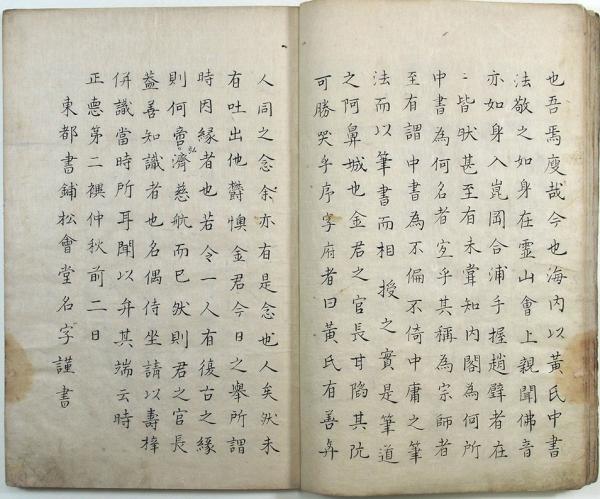 也吾焉廋哉今也海內以黃氏中書
法敬之如身在靈山會上親聞佛音
亦如身入崑岡合浦手握趙璧者在
〻皆狀甚至有未嘗知內閣為何所
中書為何名者宜乎其稱為宗師者
至有謂中書為不偏不倚中庸之筆
法而以筆書而相授之實是筆道
之阿鼻城也金君之官長甘陷其阬
可勝哭乎序字府者曰黃氏有善弁
人同之念余亦有是念也人矣狀未
有吐出他欝懊金君今日之舉所謂
時因緣者也若令一人有復古之緣
則何啻弘濟慈航而已然則君之官長
益善知識者也名偶侍坐請以壽梓
併識當時所耳聞以弁其端云時
正悳第二禩仲秋前二日
東都書鋪松會堂名字謹書